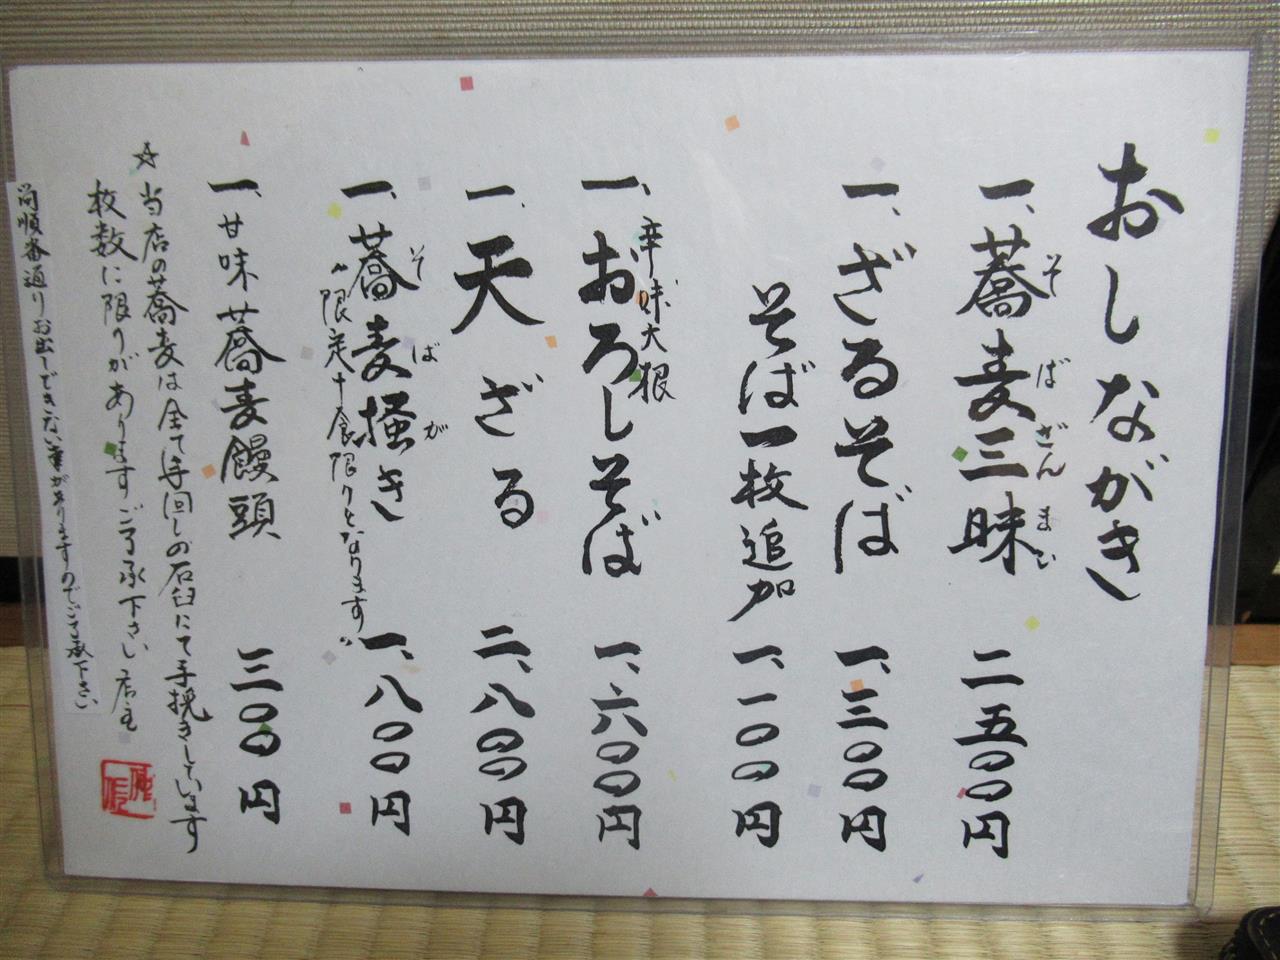 おしながき
一、蕎麦三昧 二五〇〇円
そばざんまい
一、ざるそば 一、三〇〇円
そば一枚追加 一、一〇〇円
辛味大根
一、おろしそば 一、六〇〇円
一、天ざる 二、八〇〇円
一、蕎麦掻き 一、八〇〇円
そばが
〝限定十食限りとなります〟
一、甘味蕎麦饅頭 三〇〇円
☆当店の蕎麦は全て手回しの石臼にて手挽きしています
枚数に限りがありますご了承下さい 店主
尚順番通りお出しできない事がありますのでご了承下さい